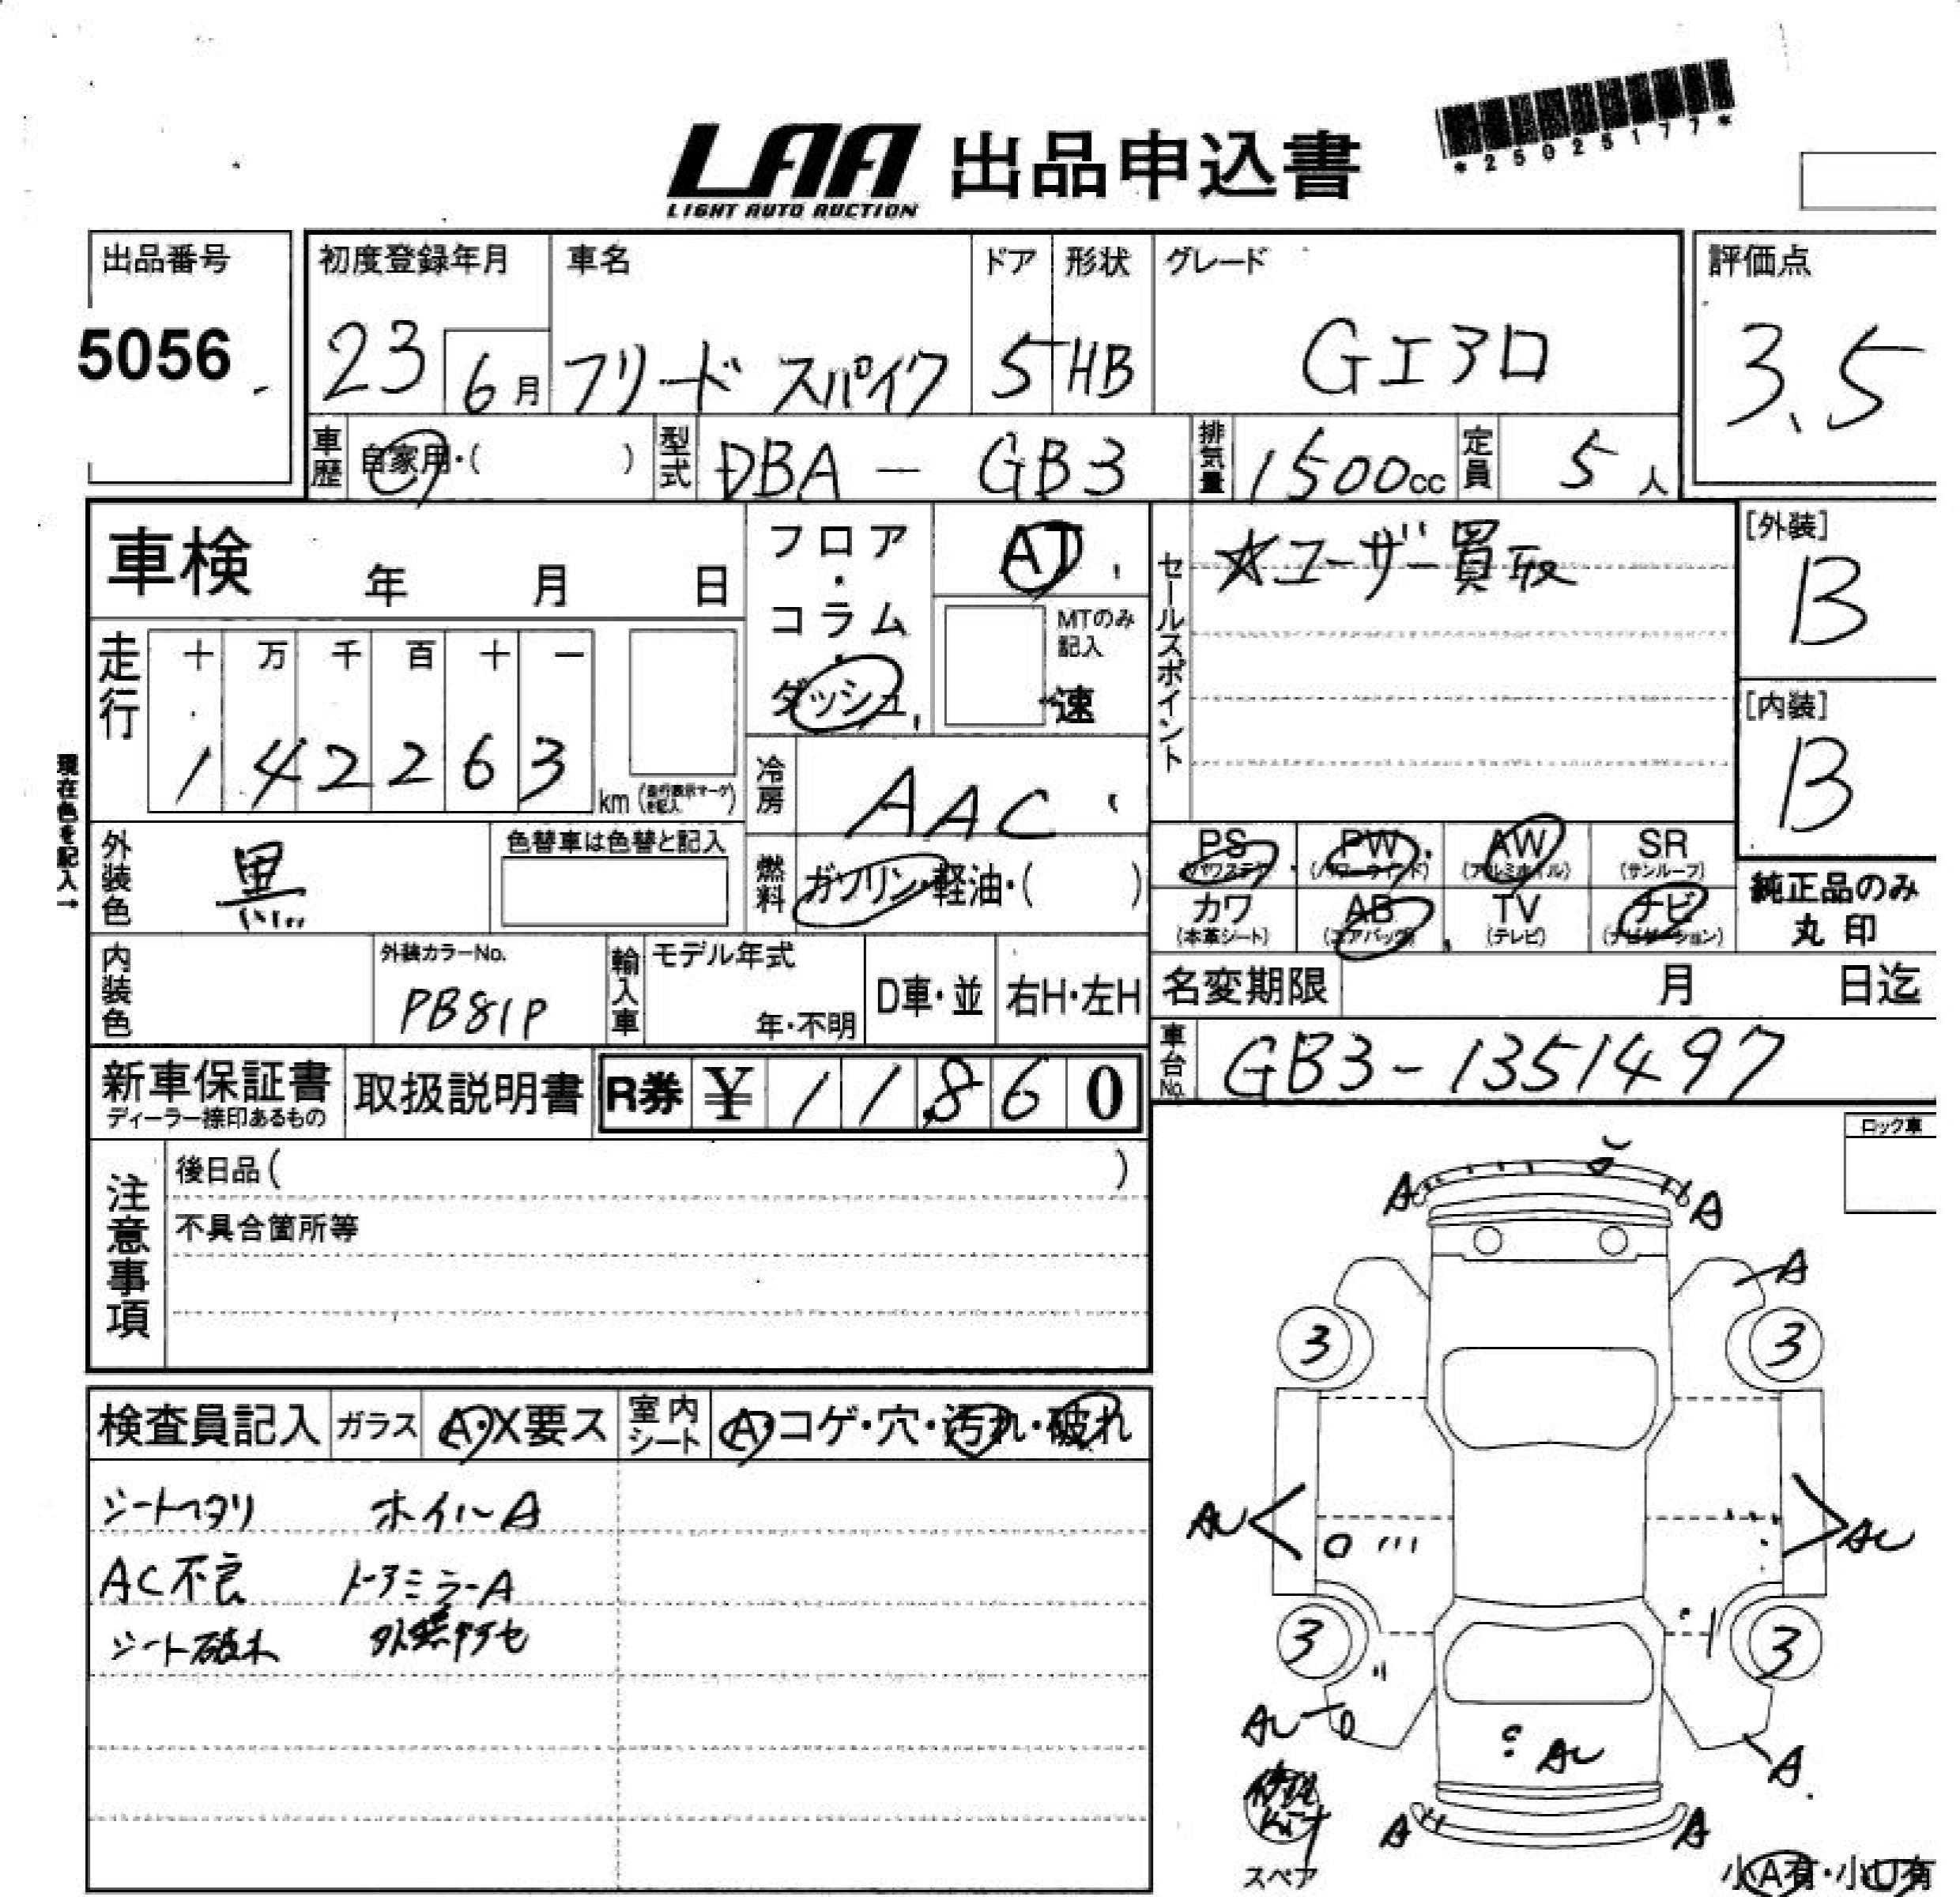 LAA 出品申込書
LIGHT AUTO AUCTION
*25025177*
出品番号
5056
初度登録年月
23
6月
車名
フリード スパイク
ドア
5
形状
HB
グレード
Gエアロ
評価点
3.5
車歴
自家用・( )
型式
DBA - GB3
排気量
1500cc
定員
5人
車検 年 月 日
フロア・コラム・ダッシュ
AT
MTのみ記入
速
セールスポイント
☆ユーザー買取
[外装]
B
[内装]
B
走行
十 万 千 百 十 一
1 4 2 2 6 3
km (走行表示マークを記入)
現在色を記入→
冷房
AAC
外装色
黒
色替車は色替と記入
燃料
ガソリン・軽油・( )
PS PW AW SR
(パワステ) (パワーウインド) (アルミホイル) (サンルーフ)
カワ AB TV ナビ
(本革シート) (エアバッグ) (テレビ) (ナビゲーション)
純正品のみ
丸印
内装色
外装カラーNo.
PB81P
輸入車
モデル年式
年・不明
D車・並
右H・左H
名変期限 月 日迄
車台No.
GB3-1351497
新車保証書
ディーラー捺印あるもの
取扱説明書
R券 ¥ 11,860
注意事項
後日品( )
不具合箇所等
ロック車
A A
A
3 3
AU AU
3 3
AU
AU
A
A A
修理
Kit
スペア
小A有・小U有
検査員記入
ガラス
A・X要ス
室内シート
A・コゲ・穴・汚れ・破れ
シートヘタリ ホイルA
AC不良 ドアミラーA
シート破れ 外装色アセ